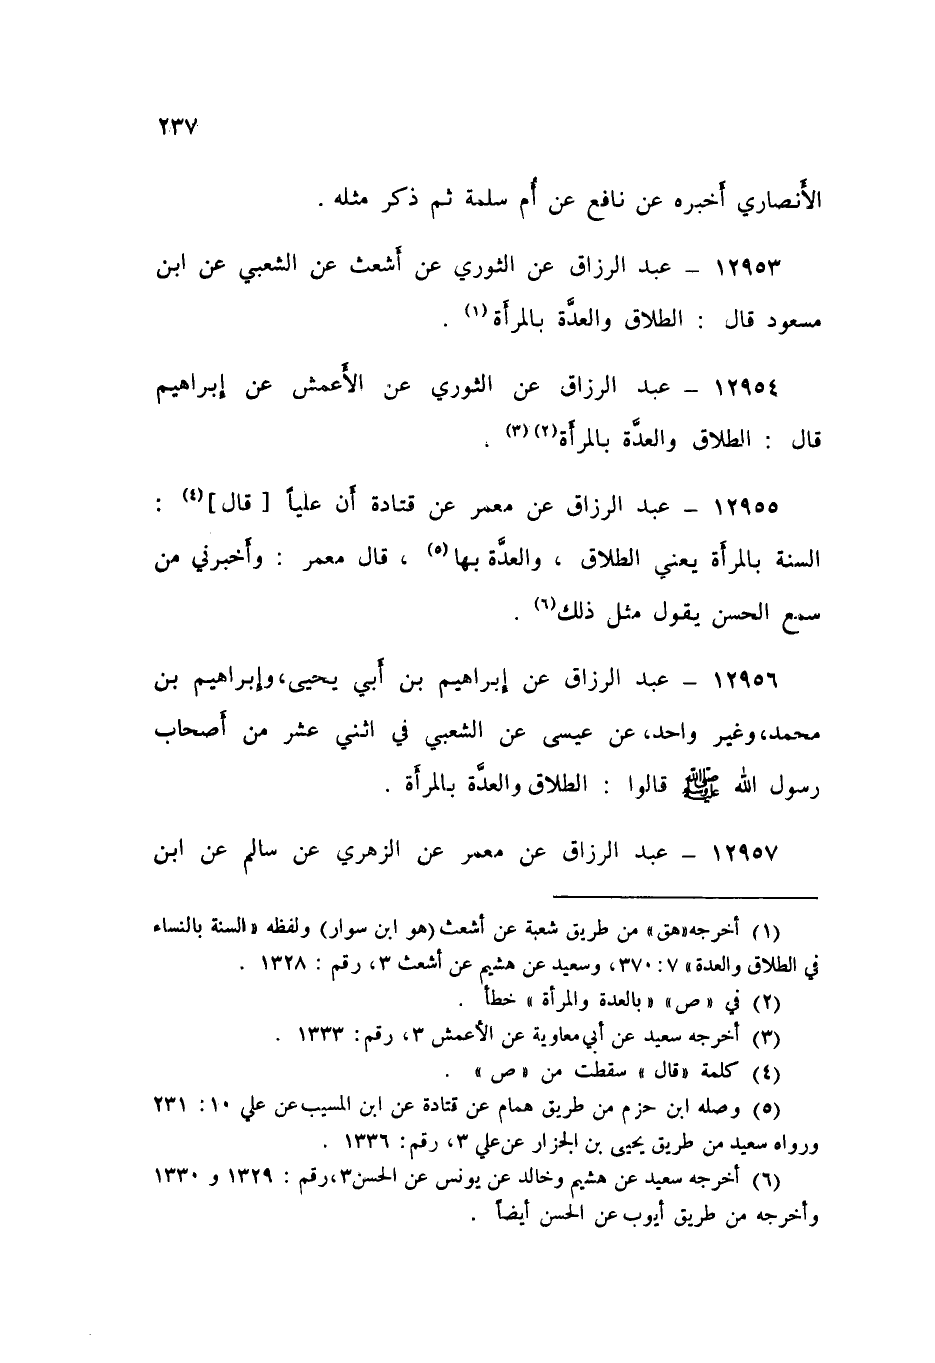 ٢٣٧
الأَنصاري أَخبره عن نافع عن أُم سلمة ثم ذكر مثله .
١٢٩٥٣ – عبد الرزاق عن الثوري عن أَشعث عن الشعبي عن ابن
مسعود قال : الطلاق والعدَّة بالمرأَة(١) .
١٢٩٥٤ – عبد الرزاق عن الثوري عن الأَعمش عن إبراهيم
قال : الطلاق والعدَّة بالمرأَة(٢)(٣) .
١٢٩٥٥ – عبد الرزاق عن معمر عن قتادة أَن علياً [ قال ](٤) :
السنة بالمرأَة يعني الطلاق ، والعدَّة بها(٥) ، قال معمر : وأَخبرني من
سمع الحسن يقول مثل ذلك(٦) .
١٢٩٥٦ – عبد الرزاق عن إبراهيم بن أَبي يحيى،وإبراهيم بن
محمد،وغير واحد،عن عيسى عن الشعبي في اثني عشر من أَصحاب
رسول الله ﷺ قالوا : الطلاق والعدَّة بالمرأَة .
١٢٩٥٧ – عبد الرزاق عن معمر عن الزهري عن سالم عن ابن
(١) أخرجه«هق» من طريق شعبة عن أشعث (هو ابن سوار) ولفظه «السنة بالنساء
في الطلاق والعدة» ٧ : ٣٧٠، وسعيد عن هشيم عن أشعث ٣، رقم : ١٣٢٨ .
(٢) في « ص» «بالعدة والمرأة » خطأ .
(٣) أخرجه سعيد عن أبي معاوية عن الأعمش ٣، رقم : ١٣٣٣ .
(٤) كلمة «قال » سقطت من « ص » .
(٥) وصله ابن حزم من طريق همام عن قتادة عن ابن المسيب عن علي ١٠ : ٢٣١
ورواه سعيد من طريق يحيى بن الجزار عن علي ٣، رقم : ١٣٣٦ .
(٦) أخرجه سعيد عن هشيم وخالد عن يونس عن الحسن٣،رقم : ١٣٢٩ و ١٣٣٠
وأخرجه من طريق أيوب عن الحسن أيضاً .